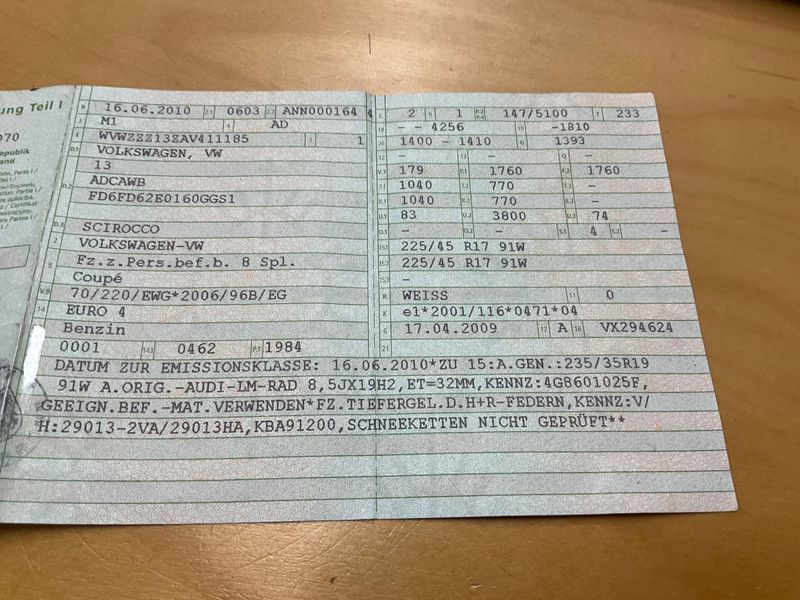 ung Teil I
070
epublik
and
B 16.06.2010 2.1 0603 2.2 ANN000164 4
J M1 4 AD
E WVWZZZ13ZAV411185 3 1
D.1 VOLKSWAGEN, VW
13
D.2 ADCAWB
FD6FD62E0160GGS1
D.3 SCIROCCO
2 VOLKSWAGEN-VW
5 Fz.z.Pers.bef.b. 8 Spl.
Coupé
V.9 70/220/EWG*2006/96B/EG
14 EURO 4
Benzin
0001 14.1 0462 P.1 1984
L 2 9 1 P.2 P.4 147/5100 T 233
18 - - 4256 19 -1810
20 1400 - 1410 G 1393
12 - 13 - Q -
V.7 179 F.1 1760 F.2 1760
7.1 1040 7.2 770 -
8.1 1040 8.2 770 -
U.1 83 U.2 3800 U.3 74
O.1 - O.2 - S.1 4 S.2 -
15.1 225/45 R17 91W
15.2 225/45 R17 91W
15.3 -
R WEISS 11 0
K e1*2001/116*0471*04
6 17.04.2009 17 A 16 VX294624
21
DATUM ZUR EMISSIONSKLASSE: 16.06.2010*ZU 15:A.GEN.:235/35R19
91W A.ORIG.-AUDI-LM-RAD 8,5JX19H2,ET=32MM,KENNZ:4G8601025F,
GEEIGN.BEF.-MAT.VERWENDEN*FZ.TIEFERGEL.D.H+R-FEDERN,KENNZ:V/
H:29013-2VA/29013HA,KBA91200,SCHNEEKETTEN NICHT GEPRÜFT**